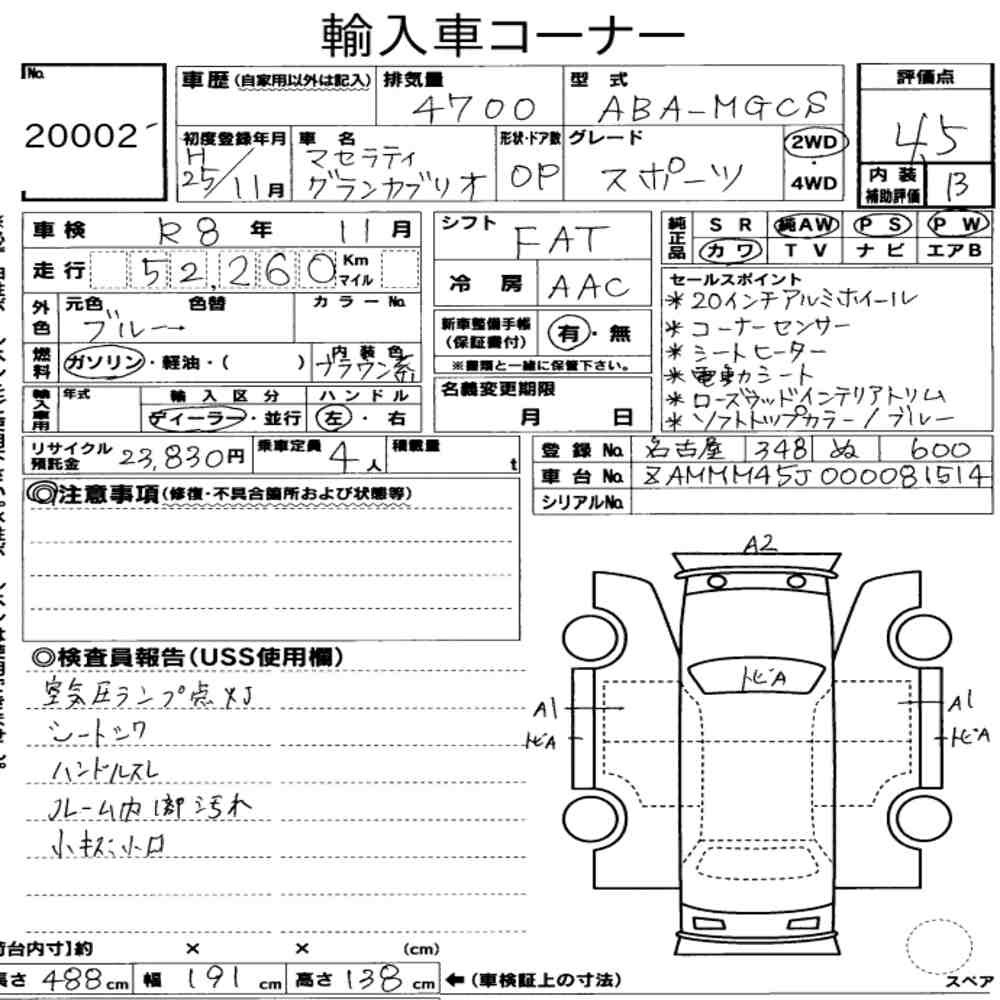 輸入車コーナー
No.
20002
車歴(自家用以外は記入)
排気量
4700
型式
ABA-MGCS
評価点
4.5
初度登録年月
H
25/11月
車名
マセラティ
グランカブリオ
形状・ドア数
OP
グレード
スポーツ
2WD
・
4WD
内装
補助評価
B
車検 R8年 11月
シフト FAT
純正品
SR 純AW PS PW
カワ TV ナビ エアB
走行 52,260 Km マイル
冷房 AAC
セールスポイント
*20インチアルミホイール
*コーナーセンサー
*シートヒーター
*電動シート
*ローズウッドインテリアトリム
*ソフトトップカラー/ブルー
外色
元色 色替
ブルー→
カラーNo.
新車整備手帳
(保証書付)
有・無
※書類と一緒に保管下さい。
燃料
ガソリン・軽油・( )
内装色
ブラウン系
名義変更期限
月 日
輸入車用
年式
輸入区分
ディーラー・並行
ハンドル
左・右
リサイクル
預託金
23,830円
乗車定員
4人
積載量
t
登録No. 名古屋 348 ぬ 600
車台No. ZAMMM45J000081514
シリアルNo.
◎注意事項(修復・不具合箇所および状態等)
◎検査員報告(USS使用欄)
空気圧ランプ点灯
シートシワ
ハンドルスレ
ルーム内1部汚れ
小キズ小凹
A2
トビA
A1
トビA
A1
トビA
荷台内寸】約 × × (cm)
長さ 488cm 幅 191cm 高さ 138cm ←(車検証上の寸法)
スペア